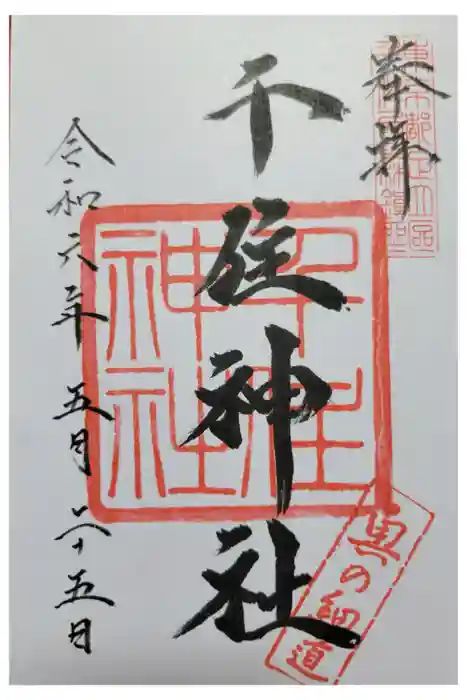 奉拝
千住神社
令和六年五月廿五日
千住神社
奥の細道